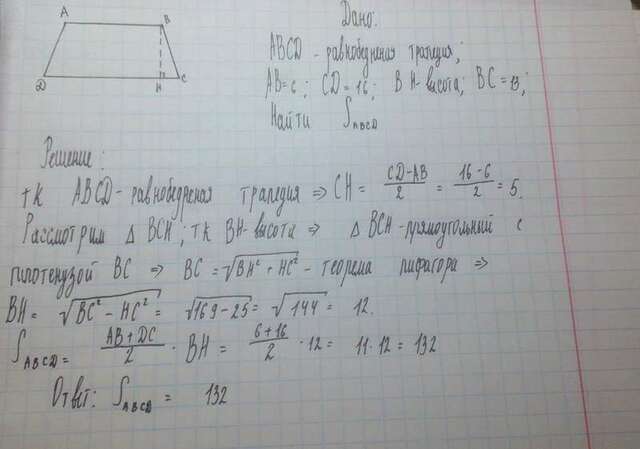 A B
D H C
Дано:
ABCD - равнобедреная трапеция;
AB=6; CD=16; BH-высота; BC=13;
Найти S ABCD
Решение:
тк ABCD-равнобедреная трапеция ⇒ CH = (CD-AB)/2 = (16-6)/2 = 5.
Рассмотрим Δ BCH; тк BH-высота ⇒ Δ BCH-прямоугольный с
гипотенузой BC ⇒ BC = √(BH² + HC²) - теорема пифагора ⇒
BH = √(BC² - HC²) = √(169-25) = √144 = 12.
S ABCD = (AB+DC)/2 · BH = (6+16)/2 · 12 = 11·12 = 132
Ответ: S ABCD = 132